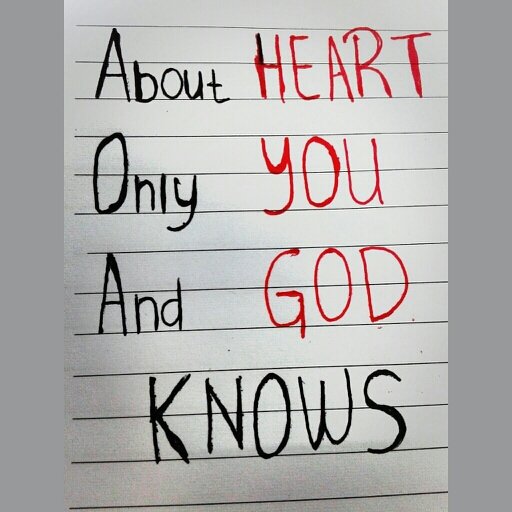 About HEART
Only YOU
And GOD
KNOWS